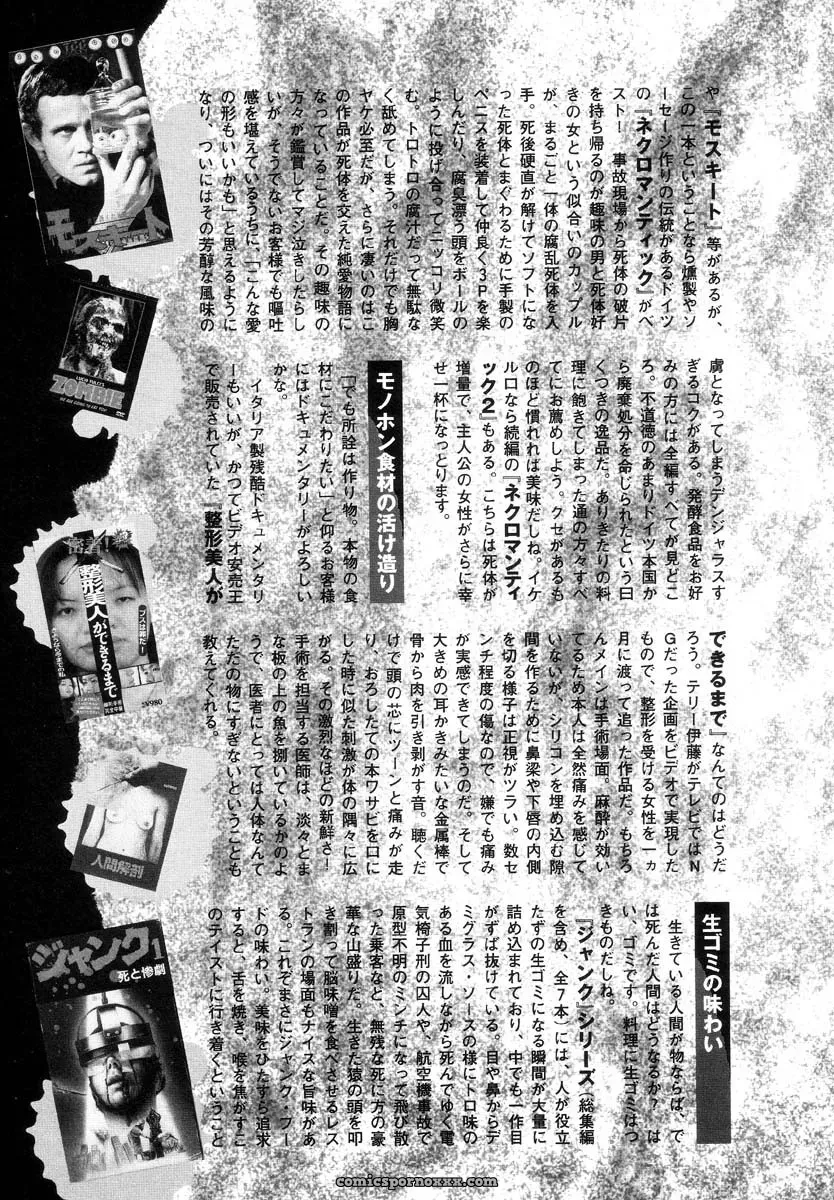 や『モスキート』等があるが、
この一本ということなら燻製やソ
ーセージ作りの伝統があるドイツ
の『ネクロマンティック』がベ
スト！　事故現場から死体の破片
を持ち帰るのが趣味の男と死体好
きの女という似合いのカップル
が、まるごと一体の腐乱死体を入
手。死後硬直が解けてソフトにな
った死体とまぐわるために手製の
ペニスを装着して仲良く3Pを楽
しんだり、腐臭漂う頭をボールの
ように投げ合ってニッコリ微笑
む。トロトロの腐汁だって無駄な
く舐めてしまう。それだけでも胸
ヤケ必至だが、さらに凄いのはこ
の作品が死体を交えた純愛物語に
なっていることだ。その趣味の
方々が鑑賞してマジ泣きしたらし
いが、そうでないお客様でも嘔吐
感を堪えているうちに、「こんな愛
の形もいいかも」と思えるように
なり、ついにはその芳醇な風味の
虜となってしまうデンジャラスす
ぎるコクがある。発酵食品をお好
みの方には全編すべてが見どこ
ろ。不道徳のあまりドイツ本国か
ら廃棄処分を命じられたという曰
くつきの逸品だ。ありきたりの料
理に飽きてしまった通の方々すべ
てにお薦めしよう。クセがあるも
のほど慣れれば美味だしね。イケ
ルロなら続編の『ネクロマンティ
ック2』もある。こちらは死体が
増量で、主人公の女性がさらに幸
せ一杯になっとります。
モノホン食材の活け造り
「でも所詮は作り物。本物の食
材にこだわりたい」と仰るお客様
にはドキュメンタリーがよろしい
かな。
イタリア製残酷ドキュメンタリ
ーもいいが、かつてビデオ安売王
で販売されていた『整形美人が
できるまで』なんてのはどうだ
ろう。テリー伊藤がテレビではN
Gだった企画をビデオで実現した
もので、整形を受ける女性を一ヵ
月に渡って追った作品だ。もちろ
んメインは手術場面。麻酔が効い
てるため本人は全然痛みを感じて
いないが、シリコンを埋め込む隙
間を作るために鼻梁や下唇の内側
を切る様子は正視がツラい。数セ
ンチ程度の傷なので、嫌でも痛み
が実感できてしまうのだ。そして
大きめの耳かきみたいな金属棒で
骨から肉を引き剥がす音。聴くだ
けで頭の芯にツーンと痛みが走
り、おろしたての本ワサビを口に
した時に似た刺激が体の隅々に広
がる。その激烈なほどの新鮮さ！
手術を担当する医師は、淡々とま
な板の上の魚を捌いているかのよ
うで、医者にとっては人体なんて
ただの物にすぎないということも
教えてくれる。
生ゴミの味わい
生きている人間が物ならば、で
は死んだ人間はどうなるか？　は
い、ゴミです。料理に生ゴミはつ
きものだしね。
『ジャンク』シリーズ（総集編
を含め、全7本）には、人が役立
たずの生ゴミになる瞬間が大量に
詰め込まれており、中でも一作目
がずば抜けている。目や鼻からデ
ミグラス・ソースの様にトロ味の
ある血を流しながら死んでゆく電
気椅子刑の囚人や、航空機事故で
原型不明のミンチになって飛び散
った乗客など、無残な死に方の豪
華な山盛りだ。生きた猿の頭を叩
き割って脳味噌を食べさせるレス
トランの場面もナイスな旨味があ
る。これぞまさにジャンク・フー
ドの味わい。美味をひたすら追求
すると、舌を焼き、喉を焦がすこ
のテイストに行き着くということ
モスキート
LUCIO FULCI'S
ZOMBIE
WE ARE GOING TO EAT YOU!
DVD
密着！
整形美人ができるまで
ブスは罪だ！
¥980
人間解剖
ジャンク1
死と惨劇
comicspornoxxx.com